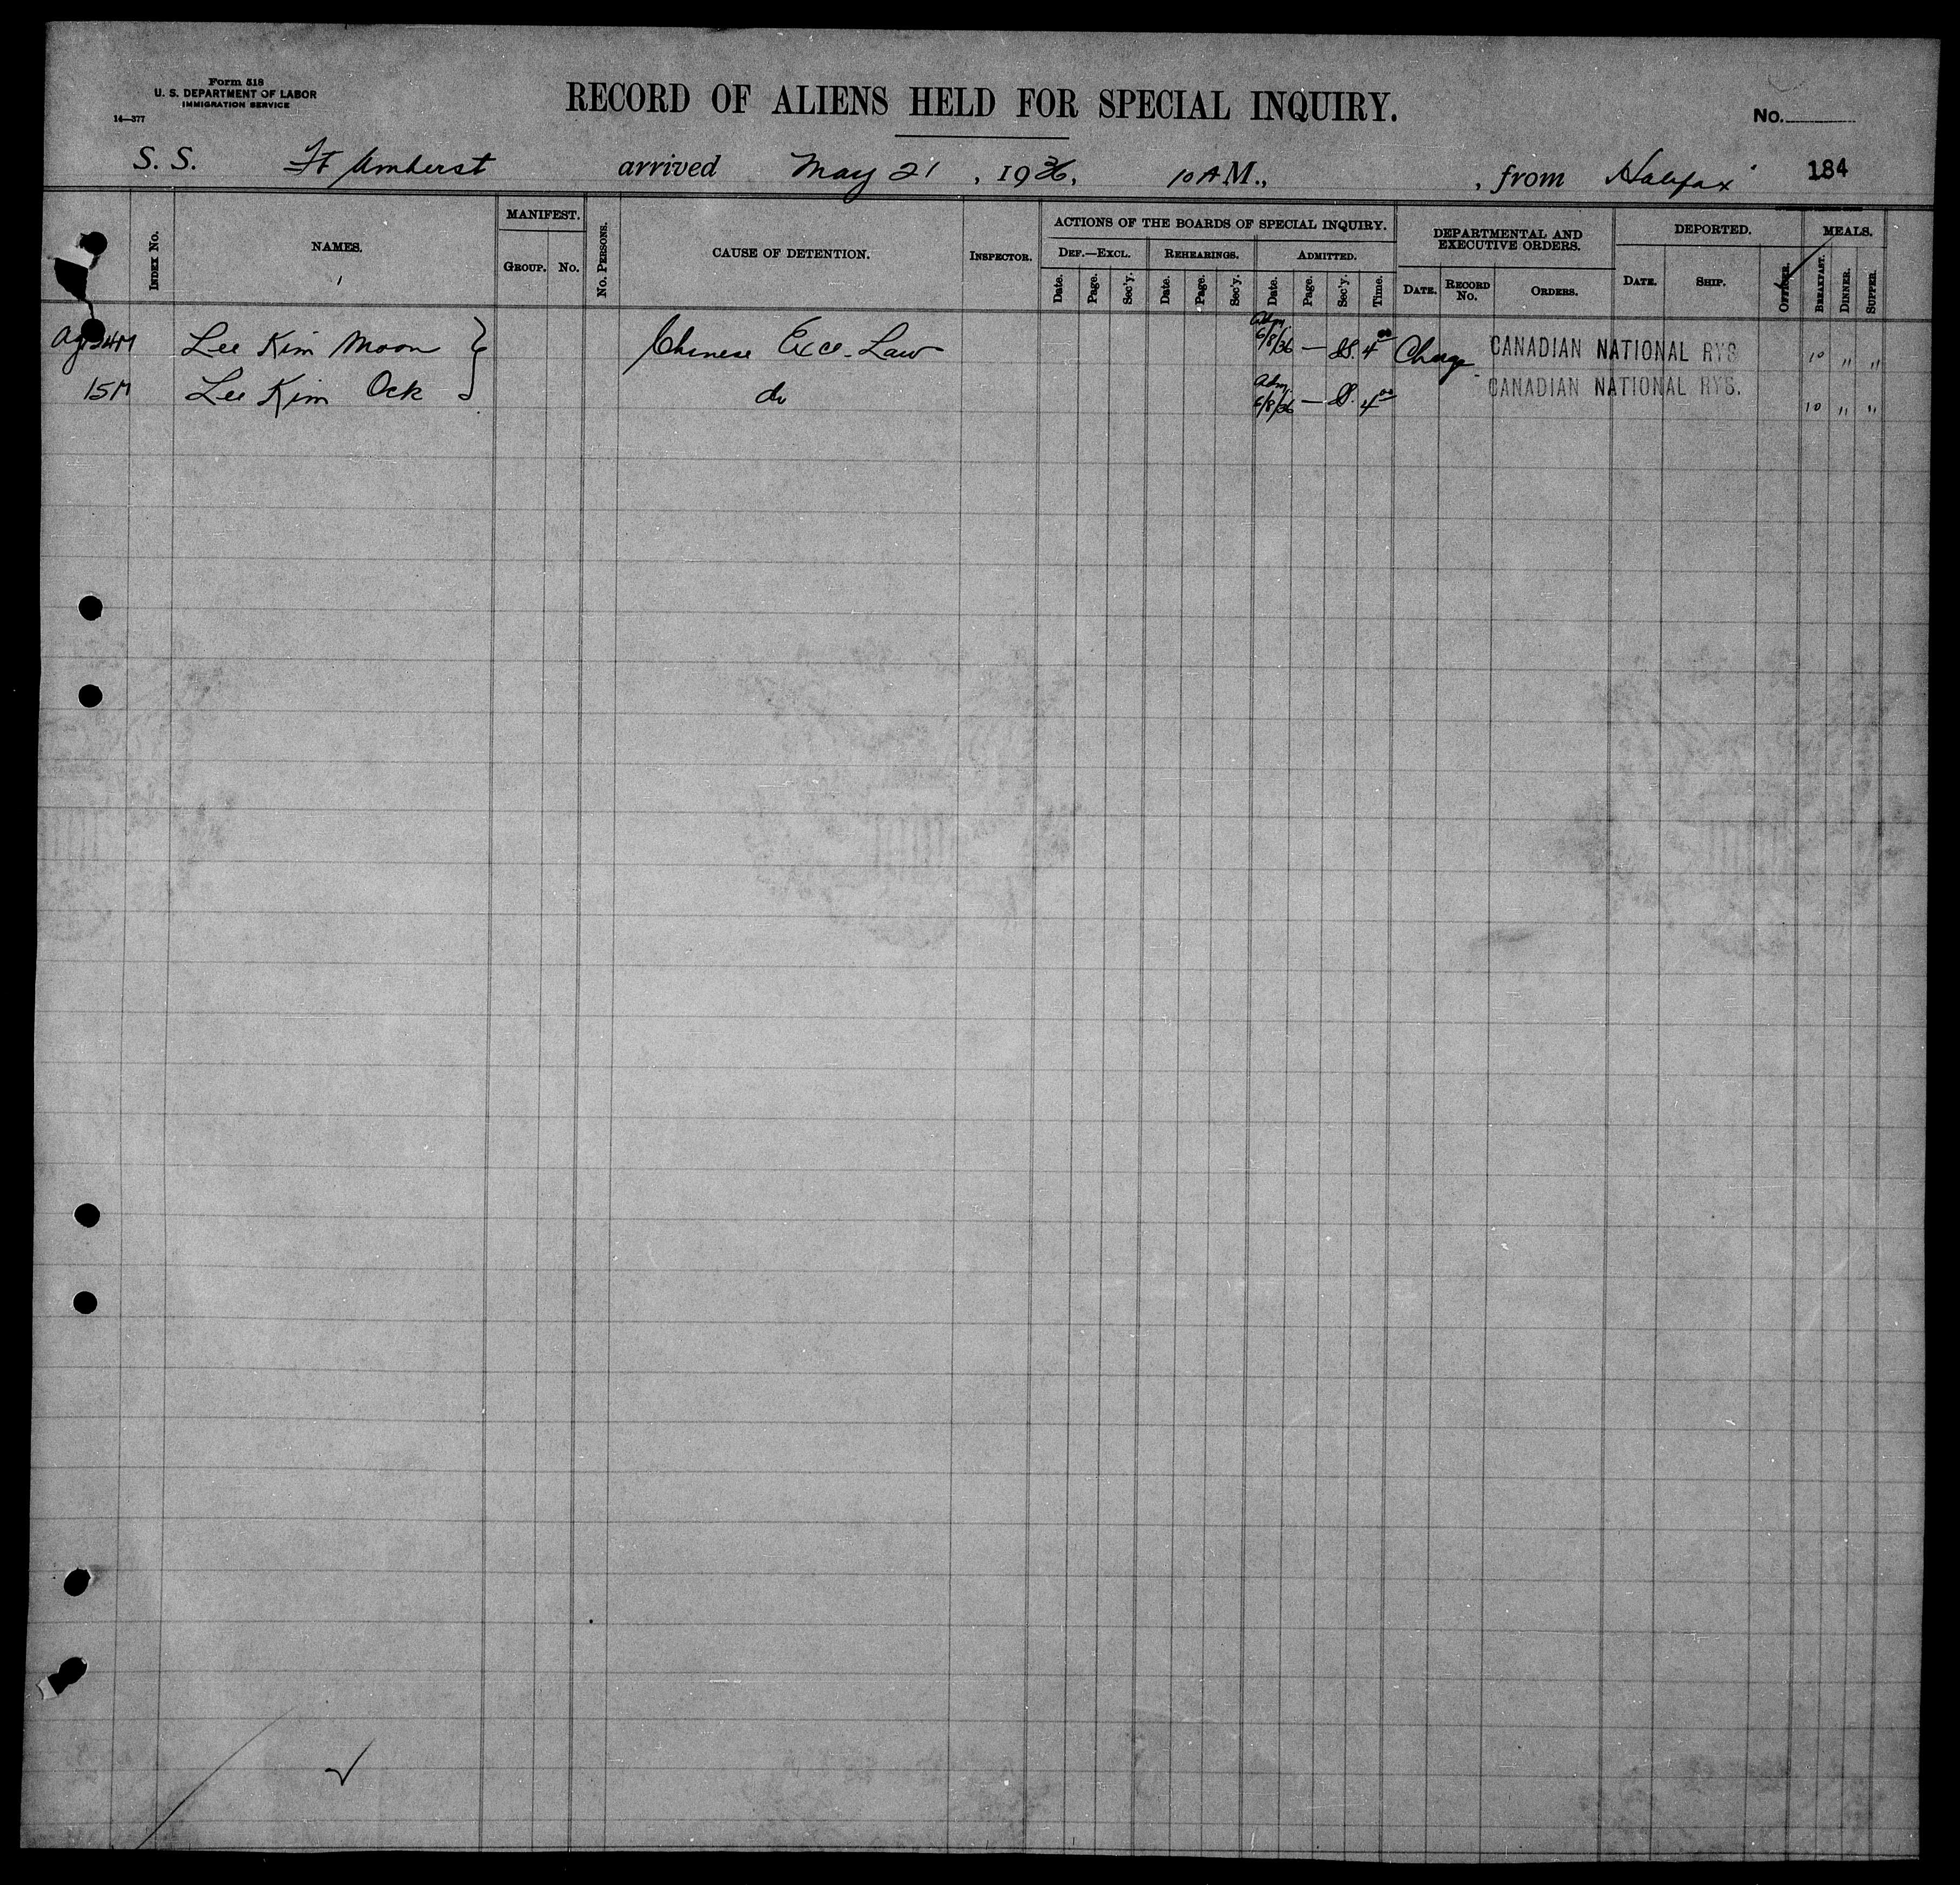 Form 518
U. S. DEPARTMENT OF LABOR
IMMIGRATION SERVICE
14—377
RECORD OF ALIENS HELD FOR SPECIAL INQUIRY.
No.
S. S. Ft Amherst arrived May 21, 1936, 10 A M., , from Halifax 184
INDEX No. NAMES. MANIFEST. GROUP. No. No. PERSONS. CAUSE OF DETENTION. INSPECTOR. ACTIONS OF THE BOARDS OF SPECIAL INQUIRY. DEF.—EXCL. Date. Page. Sec'y. REHEARINGS. Date. Page. Sec'y. ADMITTED. Date. Page. Sec'y. Time. DEPARTMENTAL AND EXECUTIVE ORDERS. DATE. RECORD No. ORDERS. DEPORTED. DATE. SHIP. OFFICER. MEALS. BREAKFAST. DINNER. SUPPER.
Lee Kim Moon Chinese Exce. Law Adm. 6/8/36 — 4 00 Charge CANADIAN NATIONAL RYS 10 " "
15M Lee Kim Ock do Adm. 6/8/36 — 4 00 CANADIAN NATIONAL RYS. 10 " "